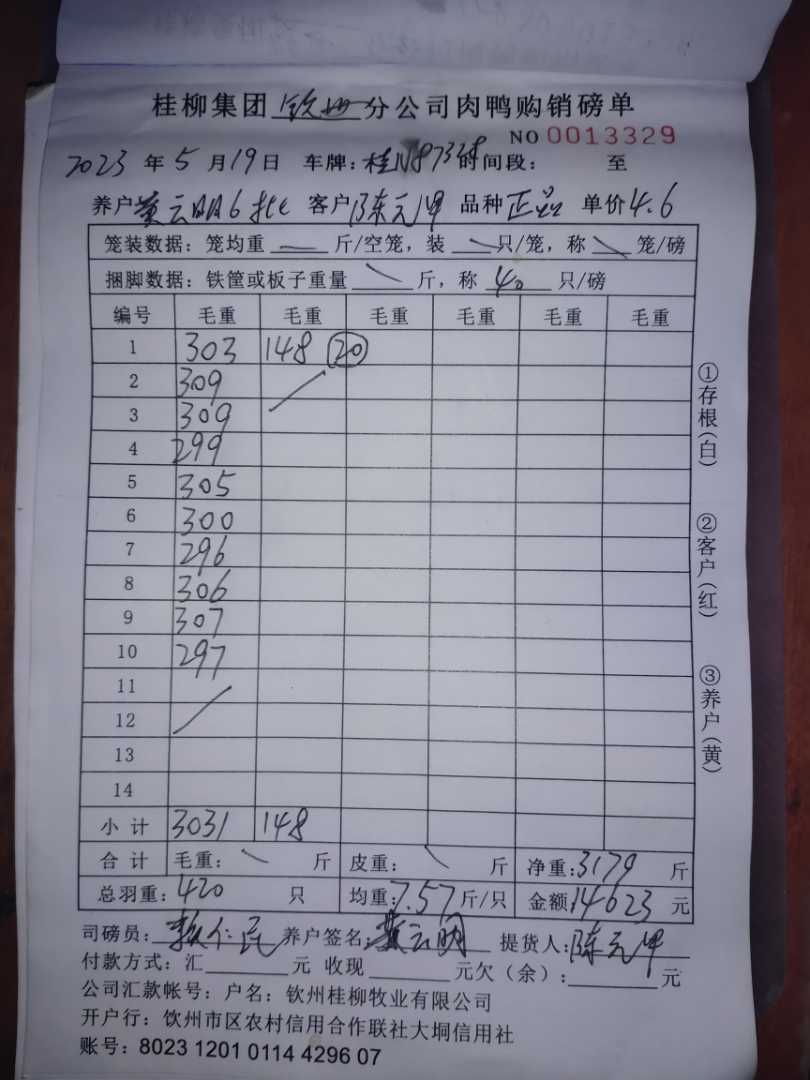 桂柳集团钦州分公司肉鸭购销磅单
NO 0013329
2023 年 5 月 19 日 车牌: 桂N87338 时间段: 至
养户 黄云明6批 客户 陈元坤 品种 正品 单价 4.6
笼装数据: 笼均重 — 斤/空笼, 装 \ 只/笼, 称 \ 笼/磅
捆脚数据: 铁筐或板子重量 \ 斤, 称 40 只/磅
编号 毛重 毛重 毛重 毛重 毛重 毛重
1 303 148 (20)
2 309
3 309
4 299
5 305
6 300
7 296
8 306
9 307
10 297
11
12
13
14
小 计 3031 148
合 计 毛重: \ 斤 皮重: \ 斤 净重: 3179 斤
总羽重: 420 只 均重: 7.57 斤/只 金额 14623 元
司磅员: 仁民 养户签名: 黄云明 提货人: 陈元坤
付款方式: 汇 元 收现 元欠(余): 元
公司汇款帐号: 户名: 钦州桂柳牧业有限公司
开户行: 饮州市区农村信用合作联社大垌信用社
账号: 8023 1201 0114 4296 07
①存根(白)
②客户(红)
③养户(黄)